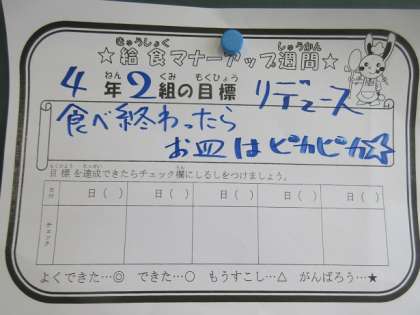 きゅうしょく しゅうかん
☆給食マナーアップ週間☆
ねん くみ もくひょう
4年2組の目標 リデュース
食べ終わったら
お皿はピカピカ☆
もくひょう たっせい らん
目標を達成できたらチェック欄にしるしをつけましょう。
日( ) 日( ) 日( ) 日( ) 日( )
チェック
よくできた…◎ できた…○ もうすこし…△ がんばろう…★